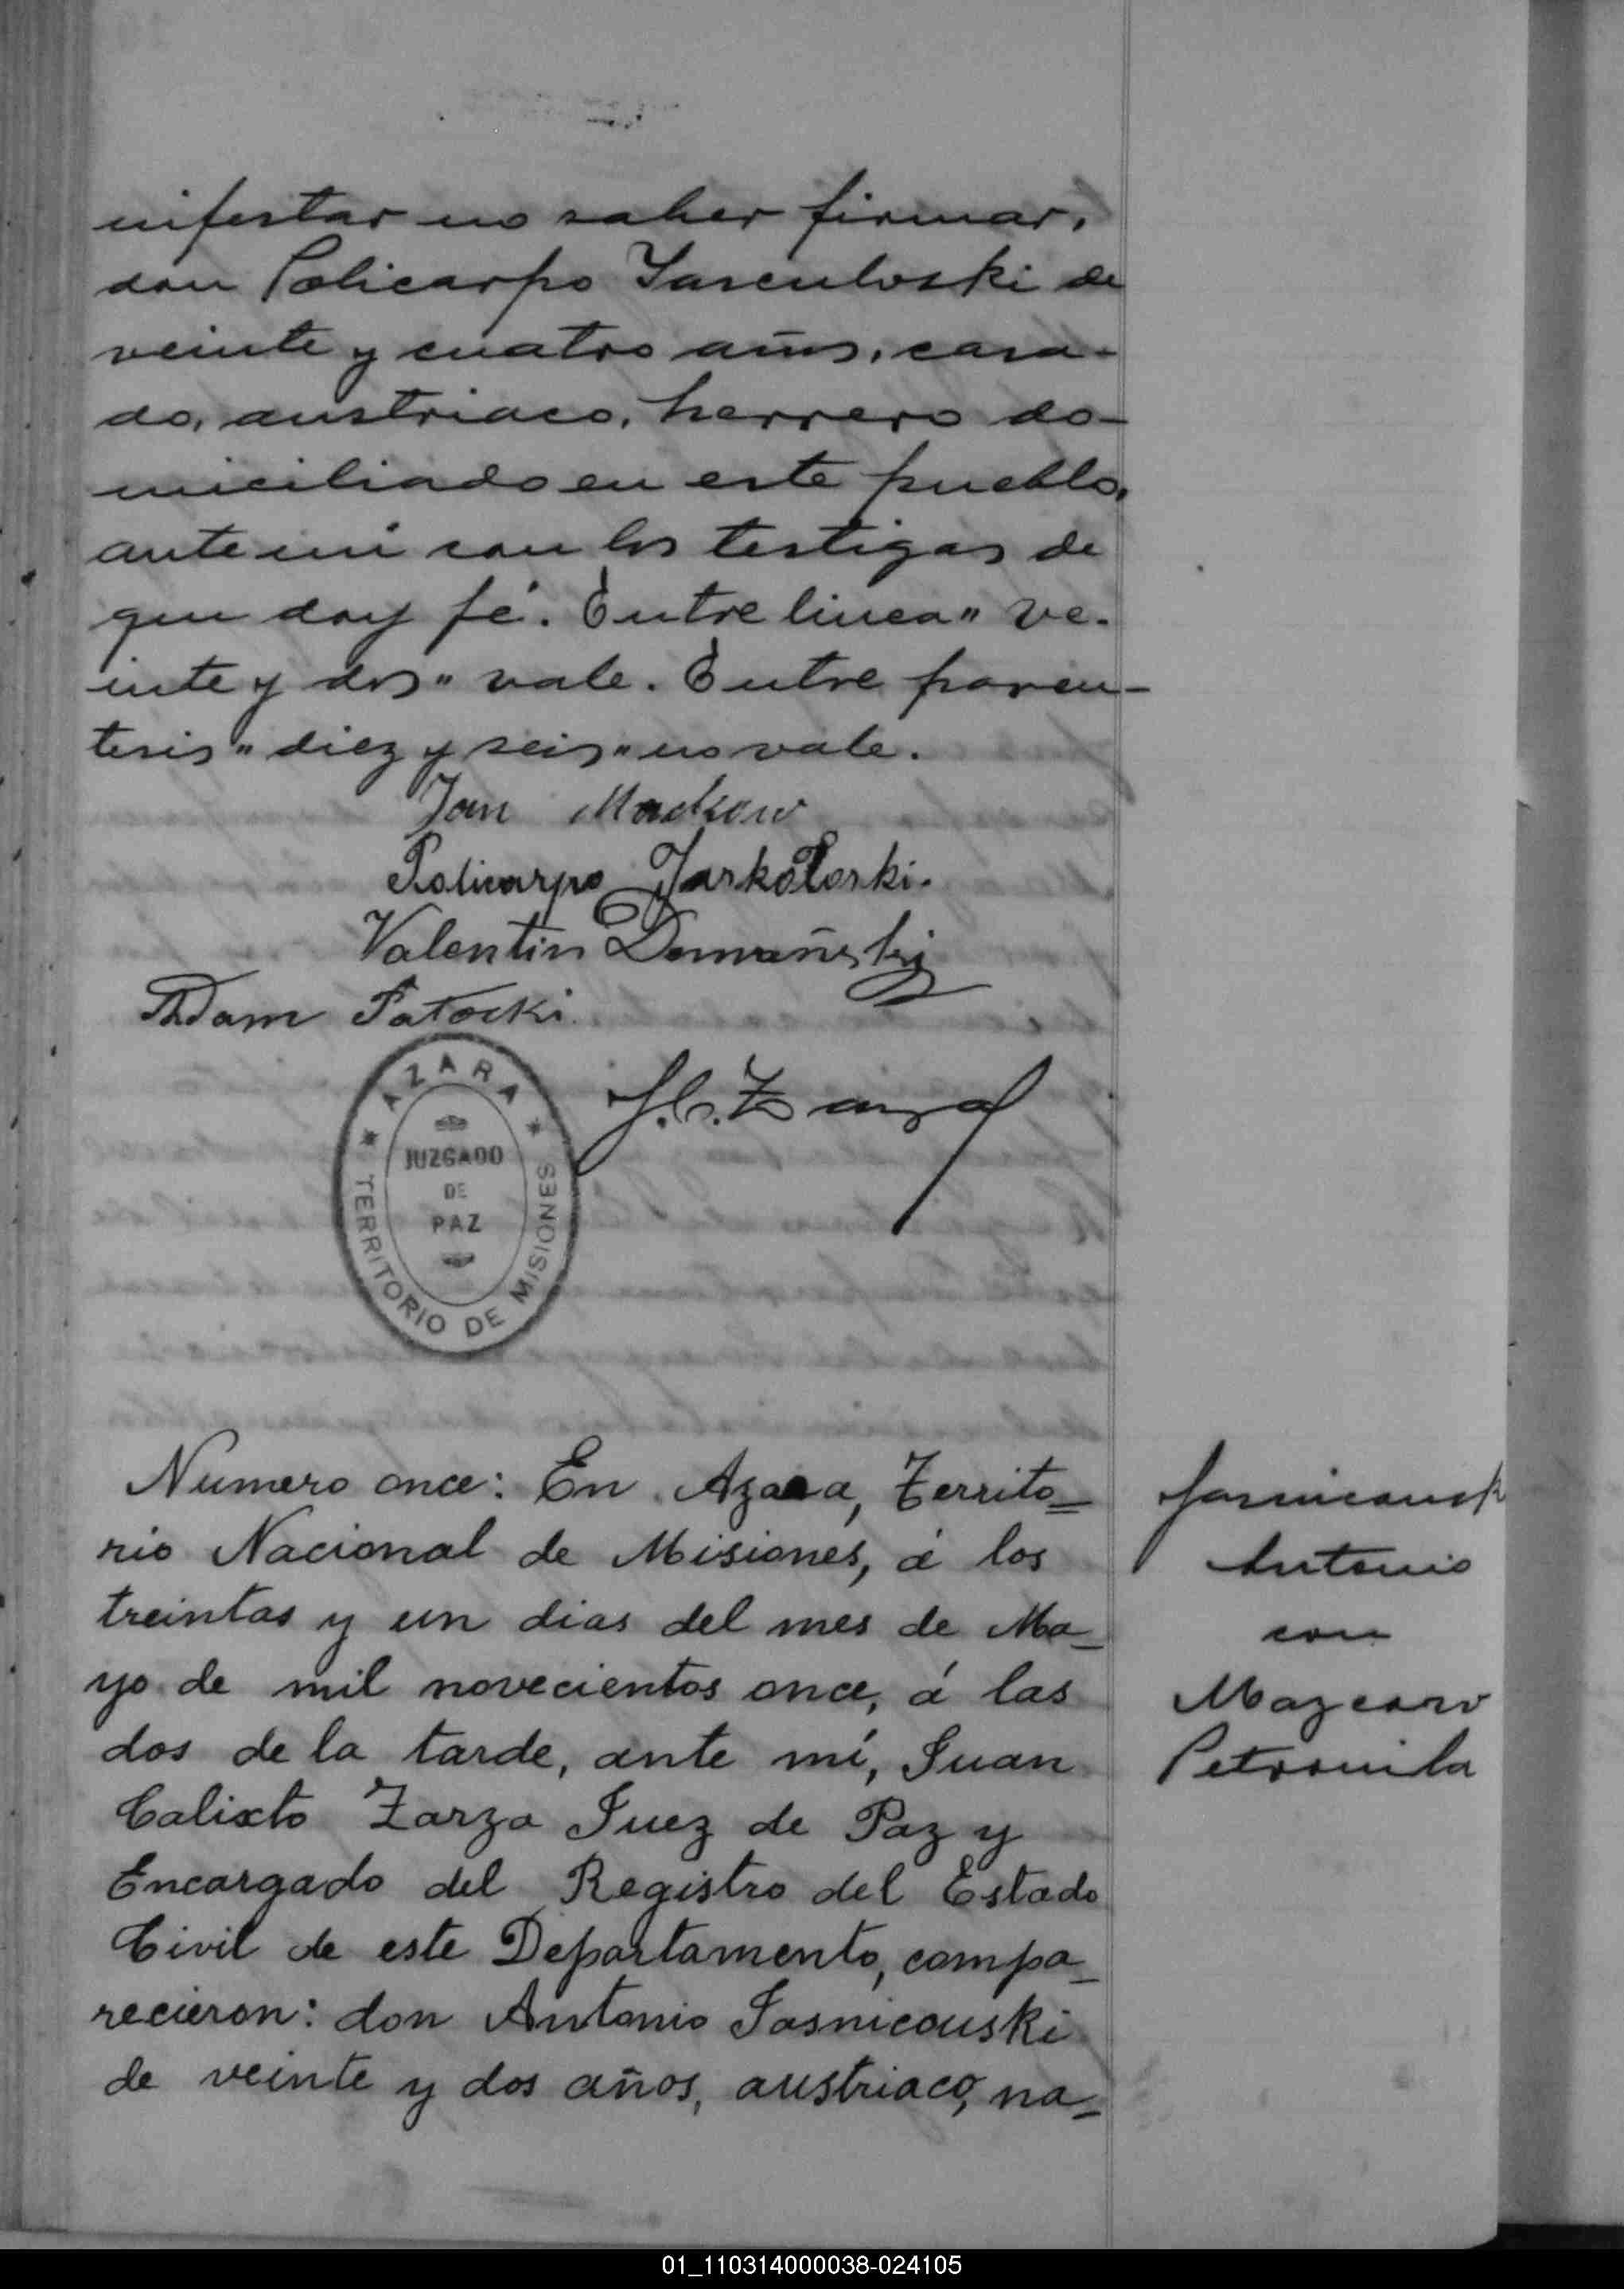 nifestar no saber firmar,
don Policarpo Iasculoski de
veinte y cuatro años, casa-
do, austriaco, herrero do-
miciliado en este pueblo,
ante mi con los testigos de
que doy fé. Entre linea "ve-
inte y dos" vale. Entre paren-
tesis "diez y seis" no vale.
Jan Maćkow
Policarpo
Valentin Domañski
Adam Patocki
J. C. Zarza
AZARA
JUZGADO
DE
PAZ
TERRITORIO DE MISIONES
Numero once: En Azara, Territo-
rio Nacional de Misiones, á los
treintas y un dias del mes de Ma-
yo de mil novecientos once, á las
dos de la tarde, ante mí, Juan
Calixto Zarza Juez de Paz y
Encargado del Registro del Estado
Civil de este Departamento, compa-
recieron: don Antonio Iasnicouski
de veinte y dos años, austriaco, na-
Jasnicousk
Antonio
con
Mazcaro
Petronila
01_110314000038-024105